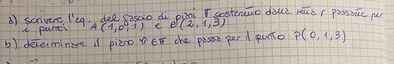 a) scrivere l'eq. del fascio di piani π sostenuto dalla retta r passante per
i punti A(1,0,1) e B(2,1,3)
b) determinare il piano π ∈ π che passa per il punto P(0,1,3)